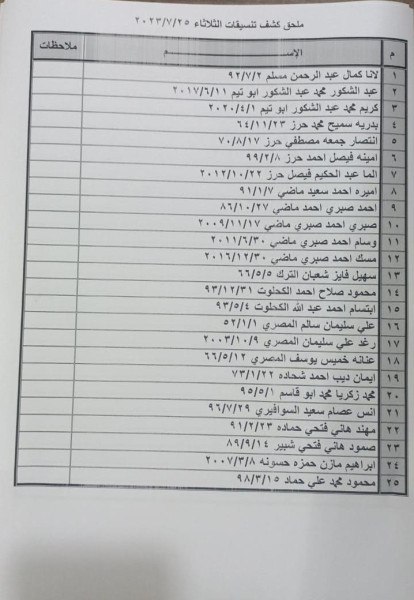 ملحق كشف تنسيقات الثلاثاء ٢٠٢٣/٧/٢٥
م الإســـــــم ملاحظات
١ لانا كمال عبد الرحمن مسلم ٩٢/٧/٢
٢ عبد الشكور محمد عبد الشكور ابو تيم ٢٠١٧/٦/١١
٣ كريم محمد عبد الشكور ابو تيم ٢٠٢٠/٤/١
٤ بدريه سميح محمد حرز ٦٤/١١/٢٣
٥ انتصار جمعه مصطفي حرز ٧٠/٨/١٧
٦ امينه فيصل احمد حرز ٩٩/٢/٨
٧ الما عبد الحكيم فيصل حرز ٢٠١٢/١٠/٢٢
٨ اميره احمد سعيد ماضي ٩١/١/٧
٩ احمد صبري احمد ماضي ٨٦/١٠/٢٧
١٠ صبري احمد صبري ماضي ٢٠٠٩/١١/١٧
١١ وسام احمد صبري ماضي ٢٠١١/٦/٣٠
١٢ مسك احمد صبري ماضي ٢٠١٦/١٢/٣٠
١٣ سهيل فايز شعبان الترك ٦٦/٥/٥
١٤ محمود صلاح احمد الكحلوت ٩٣/١٢/٣١
١٥ ابتسام احمد عبد الله الكحلوت ٩٣/٥/٤
١٦ علي سليمان سالم المصري ٥٢/١/١
١٧ رغد علي سليمان المصري ٢٠٠٣/١٠/٩
١٨ عنانه خميس يوسف المصري ٦٦/٥/١٢
١٩ ايمان ديب احمد شحاده ٧٣/١/٢٢
٢٠ محمد زكريا محمد ابو قاسم ٩٥/٥/١
٢١ انس عصام سعيد السوافيري ٩٦/٧/٢٩
٢٢ مهند هاني فتحي حماده ٩١/٢/٢٣
٢٣ صمود هاني فتحي شبير ٨٩/٩/١٤
٢٤ ابراهيم مازن حمزه حسونه ٢٠٠٧/٣/٨
٢٥ محمود محمد علي حماد ٩٨/٣/١٥